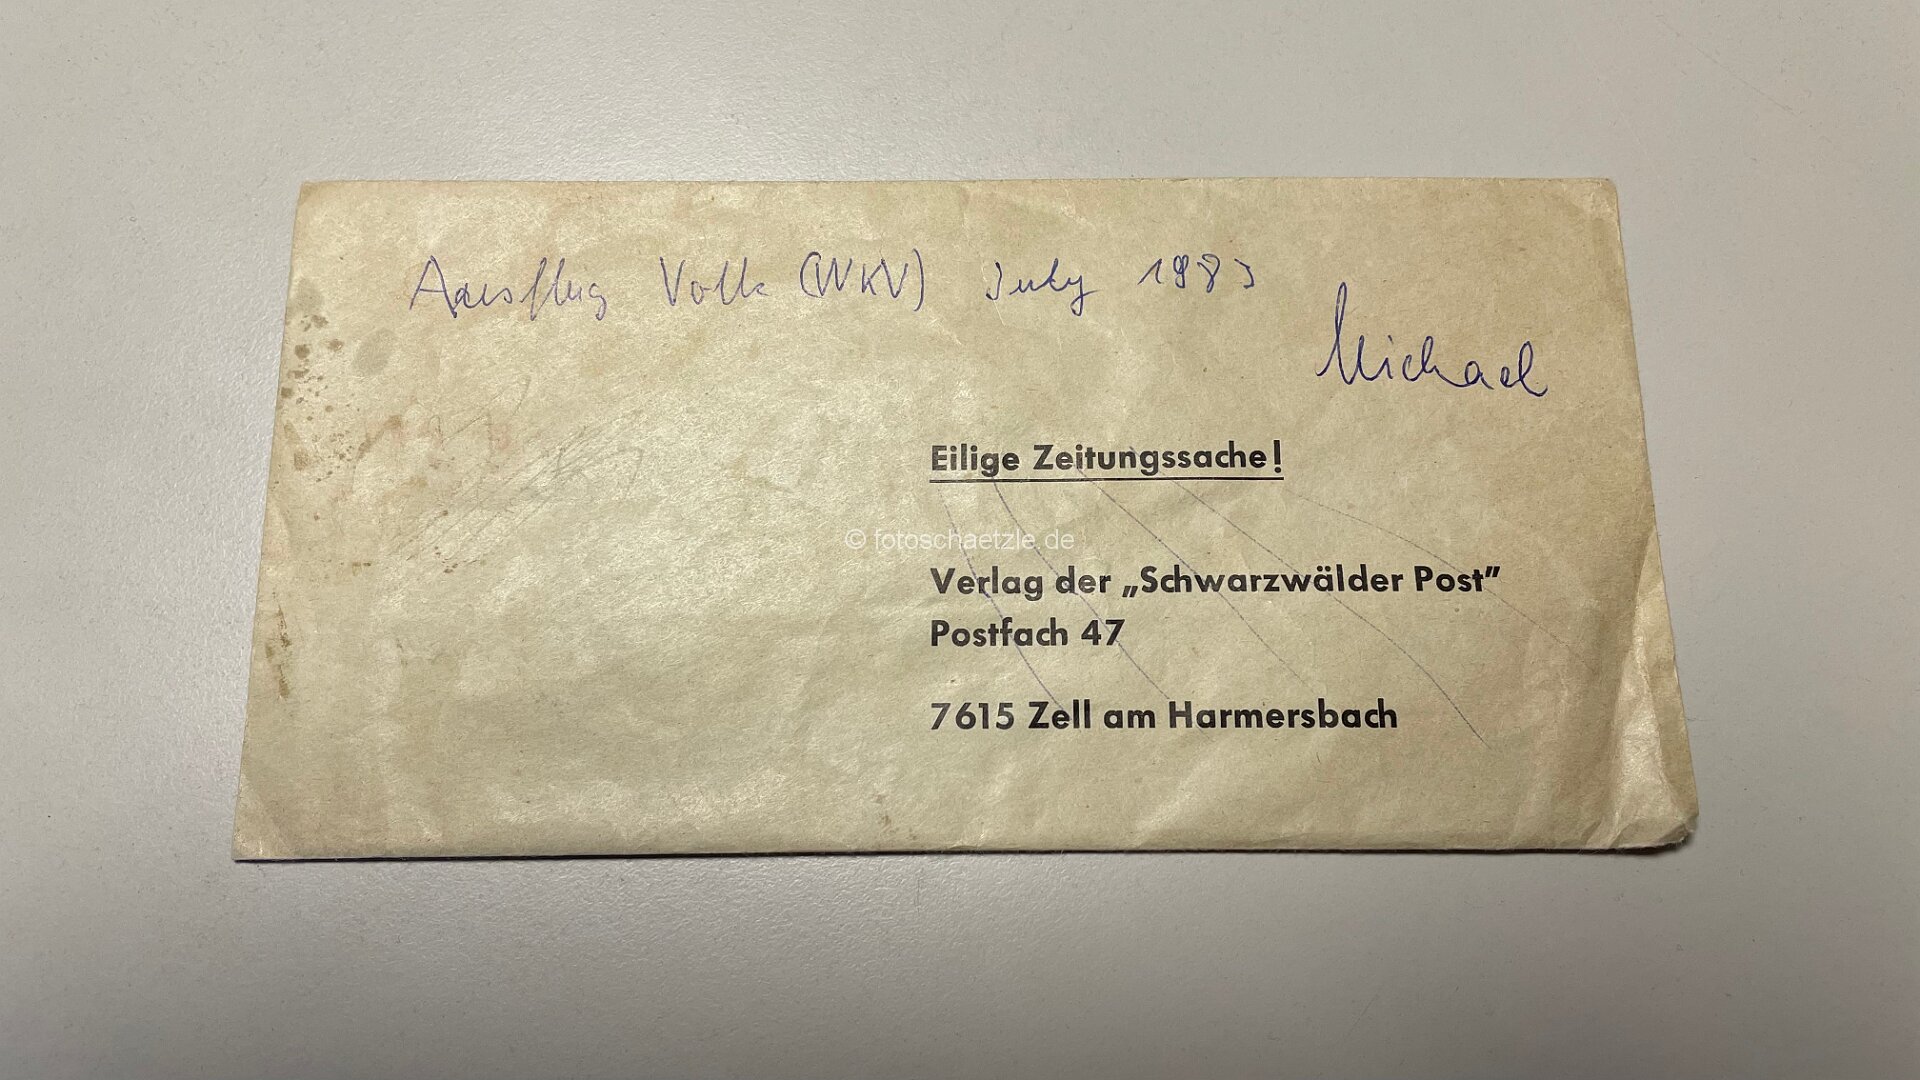 Ausflug Volk (WKV) July 1983
Michael
Eilige Zeitungssache!
© fotoschaetzle.de
Verlag der „Schwarzwälder Post"
Postfach 47
7615 Zell am Harmersbach